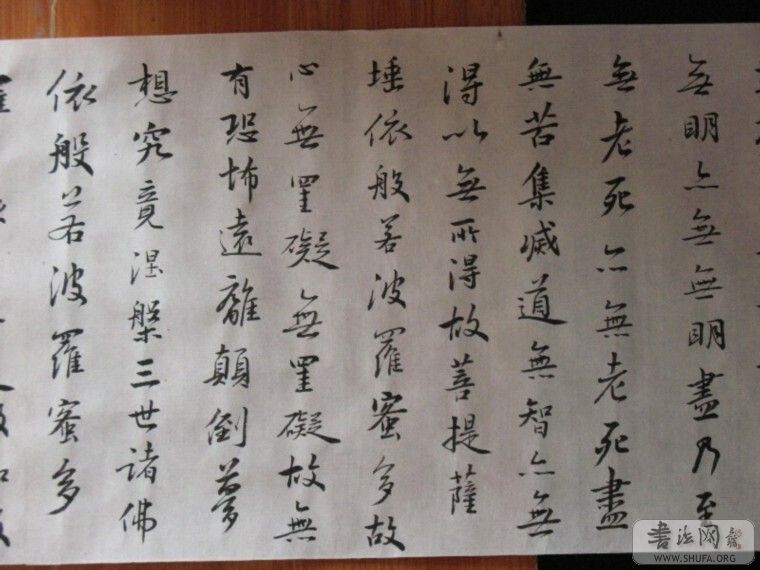 無明亦無無明盡乃至
無老死亦無老死盡
無苦集滅道無智亦無
得以無所得故菩提薩
埵依般若波羅蜜多故
心無罣礙無罣礙故無
有恐怖遠離顛倒夢
想究竟涅槃三世諸佛
依般若波羅蜜多
書法网
WWW.SHUFA.ORG